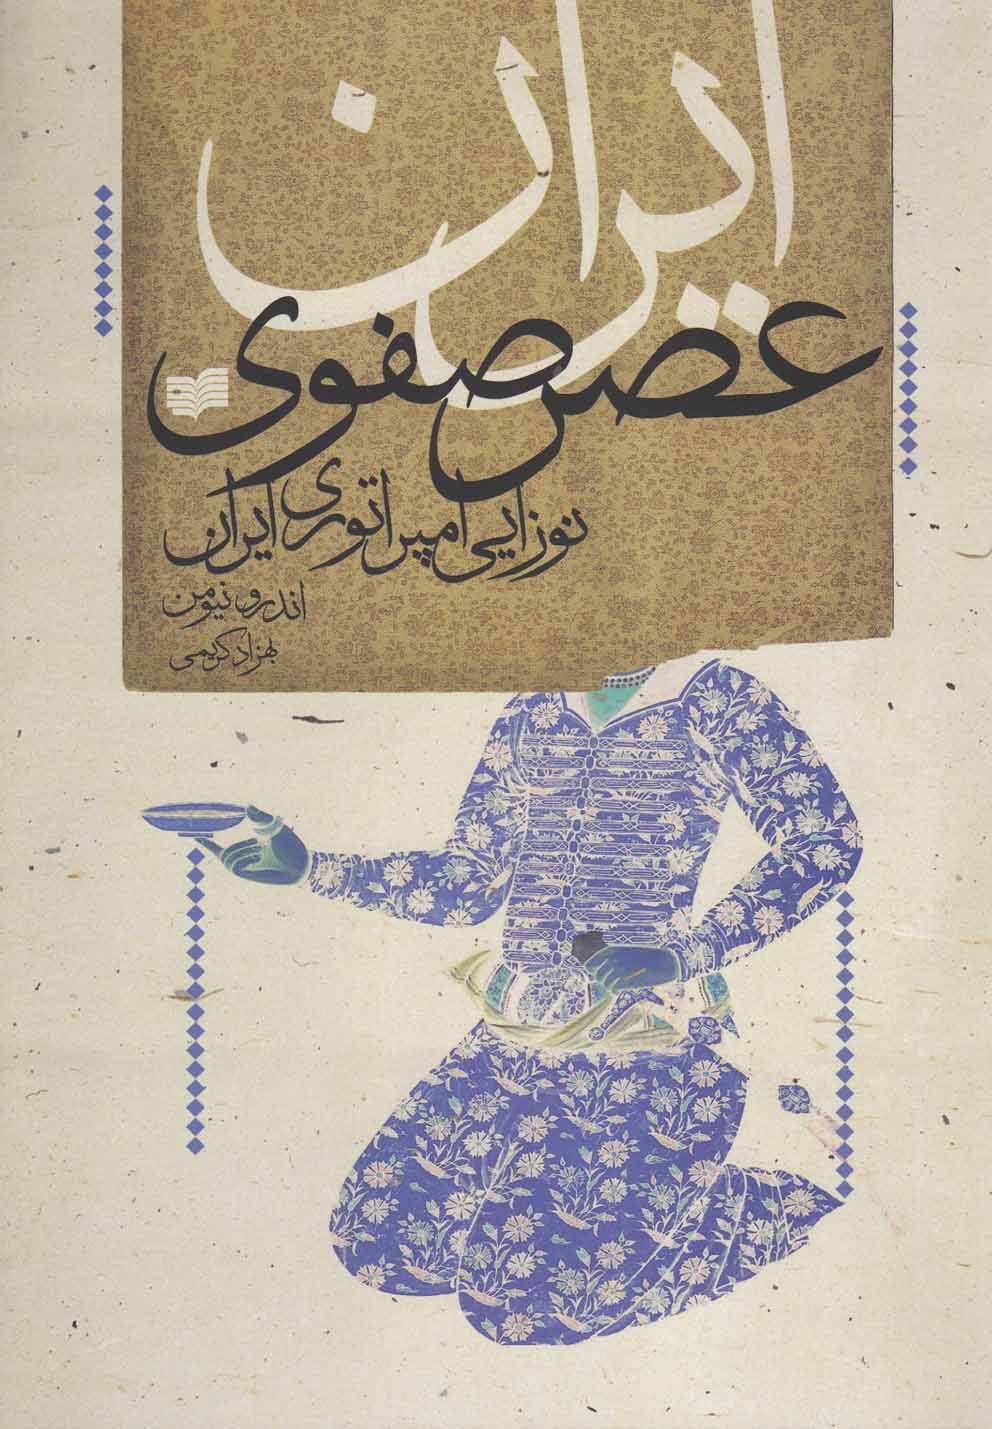 ایران
عصر صفوی
نوزایی امپراتوری ایران
اندرو نیومن
بهزاد کریمی